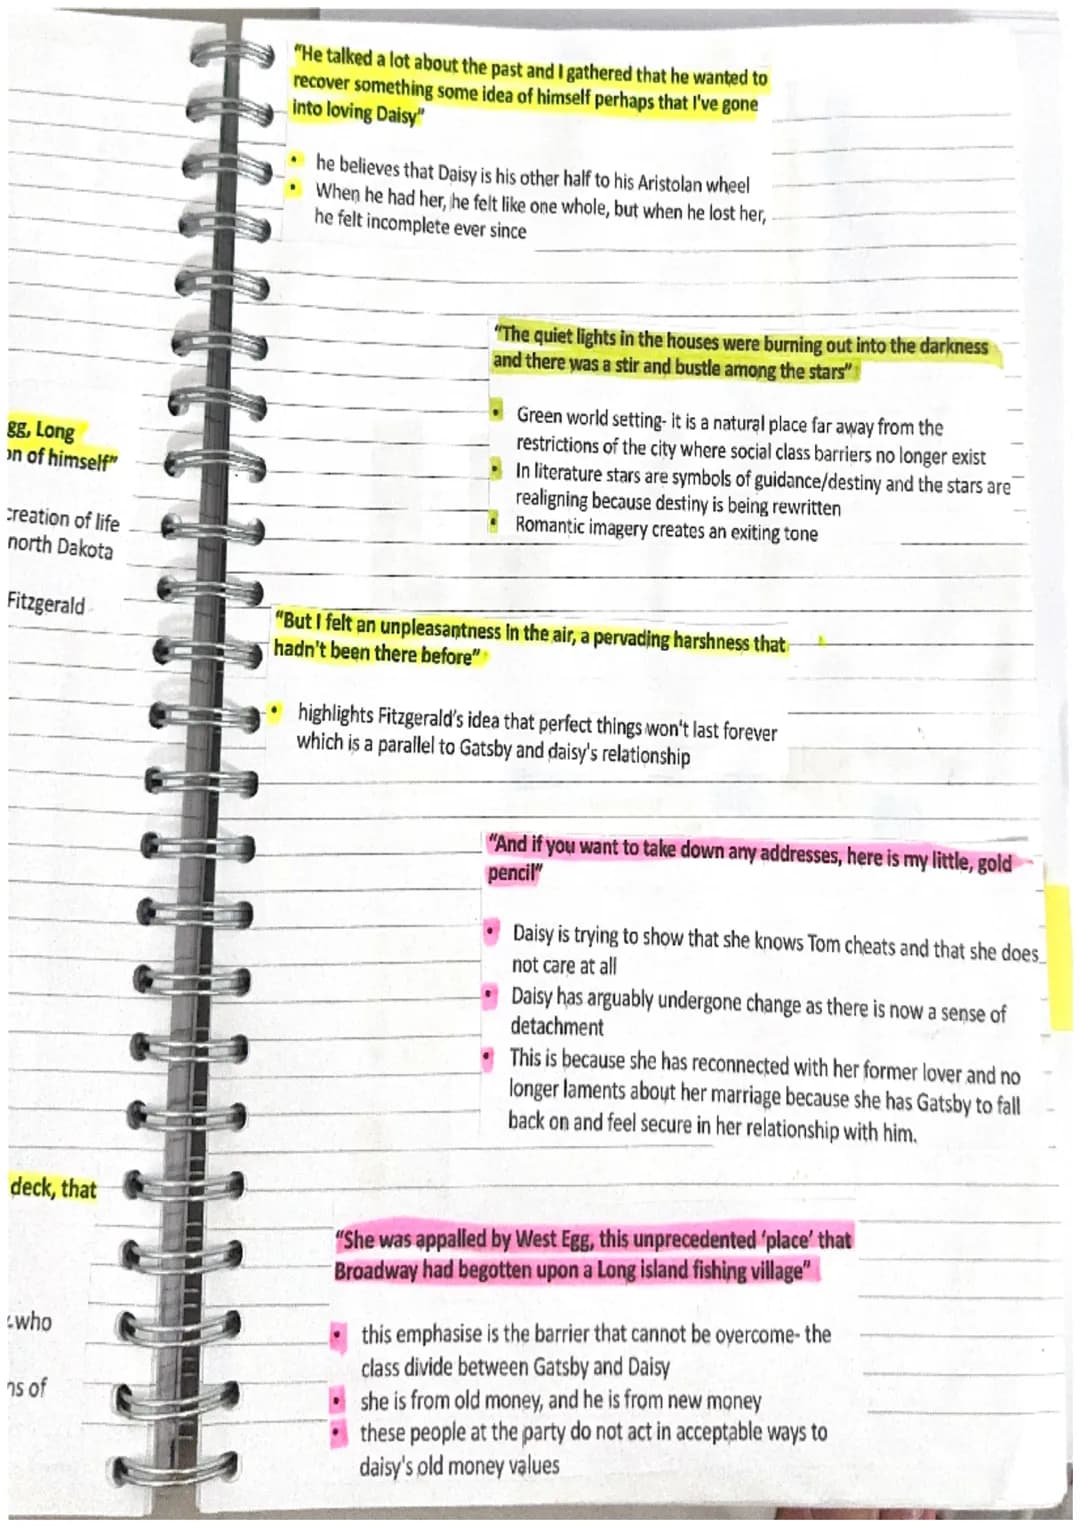 "He talked a lot about the past and I gathered that he wanted to
recover something some idea of himself perhaps that I've gone
into loving Daisy"
• he believes that Daisy is his other half to his Aristolan wheel
• When he had her, he felt like one whole, but when he lost her,
he felt incomplete ever since
"The quiet lights in the houses were burning out into the darkness
and there was a stir and bustle among the stars"
• Green world setting- it is a natural place far away from the
restrictions of the city where social class barriers no longer exist
• In literature stars are symbols of guidance/destiny and the stars are
realigning because destiny is being rewritten
• Romantic imagery creates an exiting tone
gg, Long
on of himself"
creation of life
north Dakota
Fitzgerald
"But I felt an unpleasantness in the air, a pervading harshness that
hadn't been there before"
• highlights Fitzgerald's idea that perfect things won't last forever
which is a parallel to Gatsby and daisy's relationship
"And if you want to take down any addresses, here is my little, gold
pencil"
• Daisy is trying to show that she knows Tom cheats and that she does
not care at all
• Daisy has arguably undergone change as there is now a sense of
detachment
• This is because she has reconnected with her former lover and no
longer laments about her marriage because she has Gatsby to fall
back on and feel secure in her relationship with him.
deck, that
who
ns of
"She was appalled by West Egg, this unprecedented 'place' that
Broadway had begotten upon a Long island fishing village"
• this emphasise is the barrier that cannot be overcome- the
class divide between Gatsby and Daisy
• she is from old money, and he is from new money
• these people at the party do not act in acceptable ways to
daisy's old money values